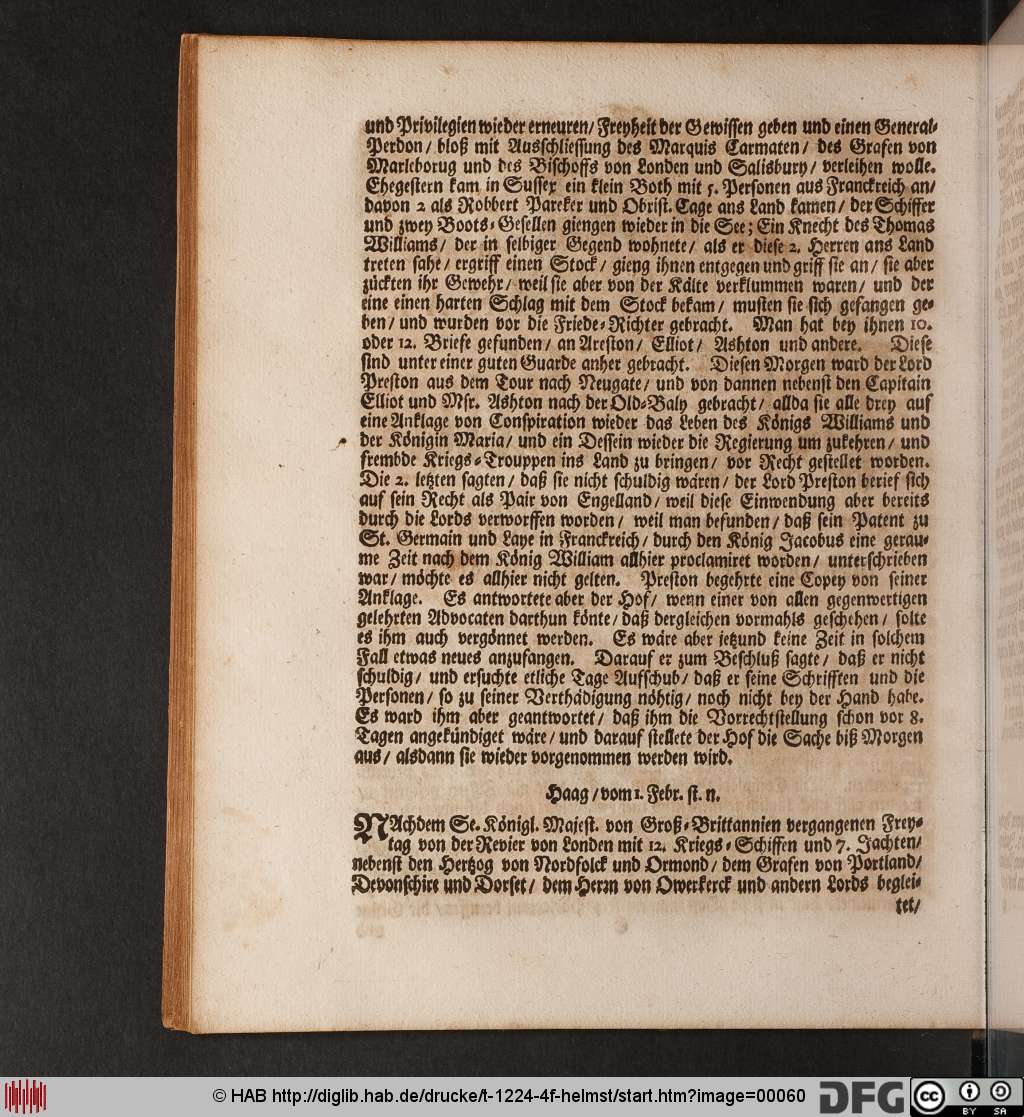 und Privilegien wieder erneuren/ Freyheit der Gewissen geben und einen General-
Perdon/ bloß mit Ausschliessung des Marquis Carmaten/ des Grafen von
Marleborug und des Bischoffs von Londen und Salisbury/ verleihen wolle.
Ehegestern kam in Sussex ein klein Both mit 5. Personen aus Franckreich an/
davon 2 als Robbert Pareker und Obrist. Cage ans Land kamen/ der Schiffer
und zwey Boots-Gesellen giengen wieder in die See; Ein Knecht des Thomas
Williams/ der in selbiger Gegend wohnete/ als er diese 2. Herren ans Land
treten sahe/ ergriff einen Stock/ gieng ihnen entgegen und griff sie an/ sie aber
zückten ihr Gewehr/ weil sie aber von der Kälte verklummen waren/ und der
eine einen harten Schlag mit dem Stock bekam/ musten sie sich gefangen ge-
ben/ und wurden vor die Friede-Richter gebracht. Man hat bey ihnen 10.
oder 12. Briefe gefunden/ an Areston/ Elliot/ Ashton und andere. Diese
sind unter einer guten Guarde anher gebracht. Diesen Morgen ward der Lord
Preston aus dem Tour nach Neugate/ und von dannen nebenst den Capitain
Elliot und Msr. Ashton nach der Old-Baly gebracht/ allda sie alle drey auf
eine Anklage von Conspiration wieder das Leben des Königs Williams und
der Königin Maria/ und ein Dessein wieder die Regierung um zukehren/ und
frembde Kriegs-Trouppen ins Land zu bringen/ vor Recht gestellet worden.
Die 2. letzten sagten/ daß sie nicht schuldig wären/ der Lord Preston berief sich
auf sein Recht als Pair von Engelland/ weil diese Einwendung aber bereits
durch die Lords verworffen worden/ weil man befunden/ daß sein Patent zu
St. Germain und Laye in Franckreich/ durch den König Jacobus eine gerau-
me Zeit nach dem König William allhier proclamiret worden/ unterschrieben
war/ möchte es allhier nicht gelten. Preston begehrte eine Copey von seiner
Anklage. Es antwortete aber der Hof/ wenn einer von allen gegenwertigen
gelehrten Advocaten darthun könte/ daß dergleichen vormahls geschehen/ solte
es ihm auch vergönnet werden. Es wäre aber ietzund keine Zeit in solchem
Fall etwas neues anzufangen. Darauf er zum Beschluß sagte/ daß er nicht
schuldig/ und ersuchte etliche Tage Aufschub/ daß er seine Schrifften und die
Personen/ so zu seiner Verthädigung nöhtig/ noch nicht bey der Hand habe.
Es ward ihm aber geantwortet/ daß ihm die Vorrechtstellung schon vor 8.
Tagen angekündiget wäre/ und darauf stellete der Hof die Sache biß Morgen
aus/ alsdann sie wieder vorgenommen werden wird.
Haag/ vom 1. Febr. st. n.
NAchdem Se. Königl. Majest. von Groß-Brittannien vergangenen Frey-
tag von der Revier von Londen mit 12. Kriegs-Schiffen und 7. Jachten/
nebenst den Hertzog von Nordfolck und Ormond/ dem Grafen von Portland/
Devonschire und Dorset/ dem Herrn von Owerkerck und andern Lords beglei-
tet/
© HAB http://diglib.hab.de/drucke/t-1224-4f-helmst/start.htm?image=00060
DFG
cc
BY SA